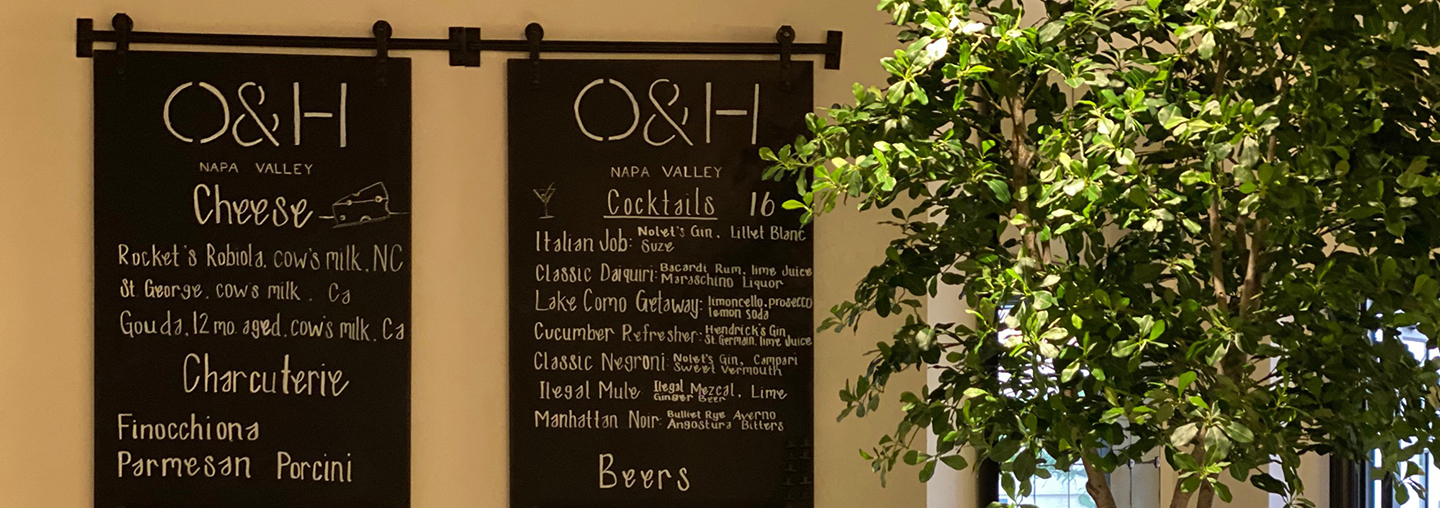 O&H
NAPA VALLEY
Cheese
Rocket's Robiola, cow's milk, NC
St George, cow's milk, Ca
Gouda, 12 mo. aged, cow's milk, Ca
Charcuterie
Finocchiona
Parmesan Porcini
O&H
NAPA VALLEY
Cocktails 16
Italian Job: Nolet's Gin, Lillet Blanc
Suze
Classic Daiquiri: Bacardi Rum, lime Juice
Maraschino Liquor
Lake Como Getaway: limoncello, prosecco
lemon soda
Cucumber Refresher: Hendrick's Gin,
St. Germain, lime Juice
Classic Negroni: Nolet's Gin, Campari
Sweet Vermouth
Ilegal Mule Ilegal Mezcal, Lime
Ginger Beer
Manhattan Noir: Bulliet Rye Averno
Angostura Bitters
Beers